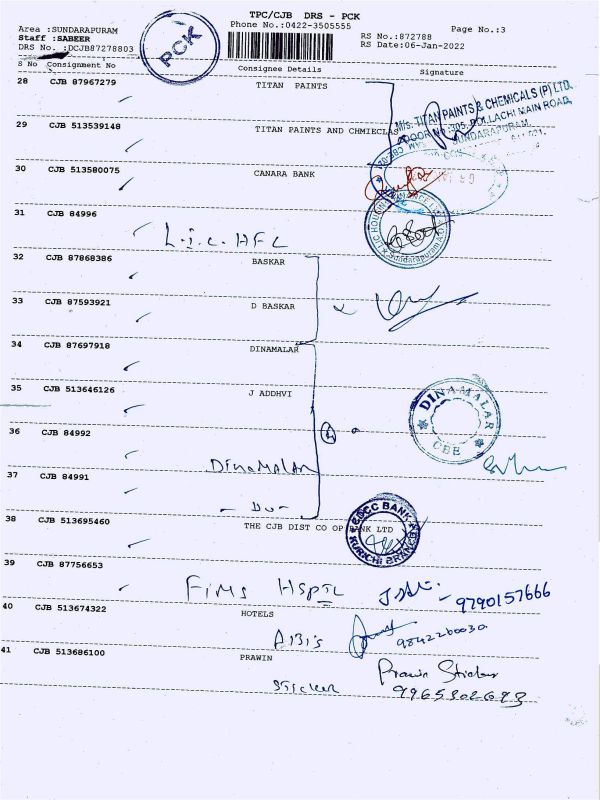 TPC/CJB DRS - PCK
Area :SUNDARAPURAM
Phone No.:0422-3505555
Page No.:3
Staff :SABEER
RS No.:872788
DRS No. :DCJB87278803
RS Date:06-Jan-2022
PCK
S No Consignment No Consignee Details Signature
28 CJB 87967279 TITAN PAINTS
M/s. TITAN PAINTS & CHEMICALS (P) LTD.
DOOR NO :305, POLLACHI MAIN ROAD,
SUNDARAPURAM,
29 CJB 513539148 TITAN PAINTS AND CHMIECLAS
30 CJB 513580075 CANARA BANK
31 CJB 84996
L.I.C. HFL
32 CJB 87868386 BASKAR
33 CJB 87593921 D BASKAR
34 CJB 87697918 DINAMALAR
35 CJB 513646126 J ADDHVI
DINAMALAR
CBE
36 CJB 84992
DINAMALAR
37 CJB 84991
- Do -
38 CJB 513695460 THE CJB DIST CO OP BANK LTD
CDCC BANK
KURICHI BRANCH
39 CJB 87756653
FIMS HSPTL
9790157666
40 CJB 513674322 HOTELS
9842260030
41 CJB 513686100 PRAWIN
Sticker
Prawin Sticker